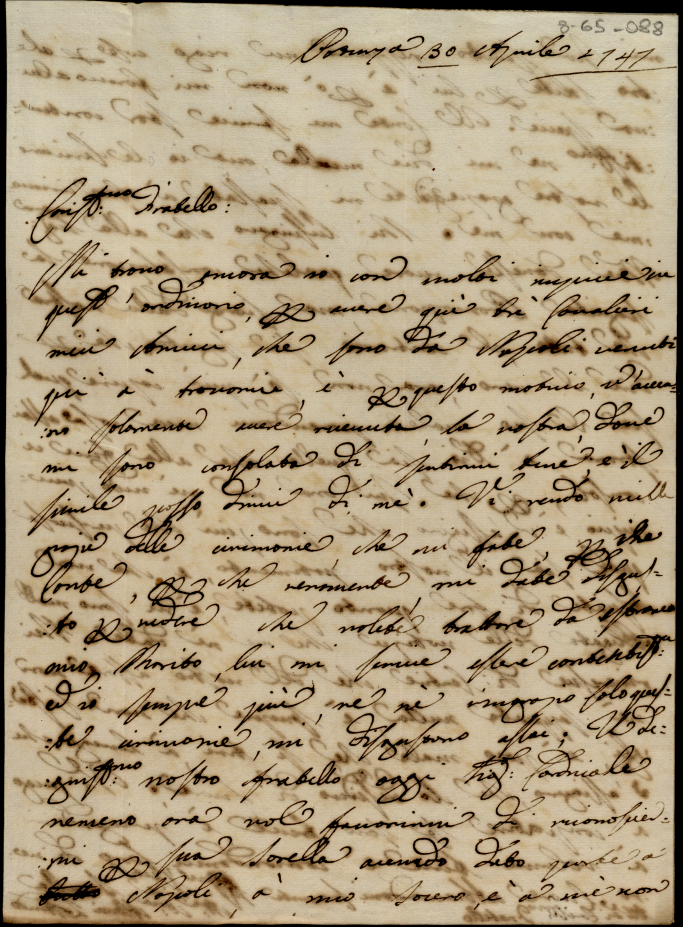 8-65-088
30 Aprile 1747
Cariss:mo Fratello:
Mi trovo ancora io con molti impicci in
quest' ordinario, per avere quì trè Cavalieri
miei Amici, che sono da Napoli venuti
quì à trovarmi, è per questo motivo, v'accer=
:no solamente avere ricevuta la vostra, dove
mi sono consolata di sentirvi bene è il
simile posso dirvi di mè. Vi rendo mille
grazie delle cirimonie, che mi fate, per che
Conte, per che veramente mi date disgus=
:to per vedere che volete trattare da estraneo
mio Marito, lui mi scrive essere contentiss:mo
ed io sempre più, ve nè ringrazio solo ques=
:te cirimonie, mi disgustono assai; Il De=
:gniss:mo nostro fratello oggi Sig: Cardinale
nemeno ora vol favorirmi di riconoscier=
:mi per sua sorella avendo dato parte à
Napoli, à mio socero, è à mè non